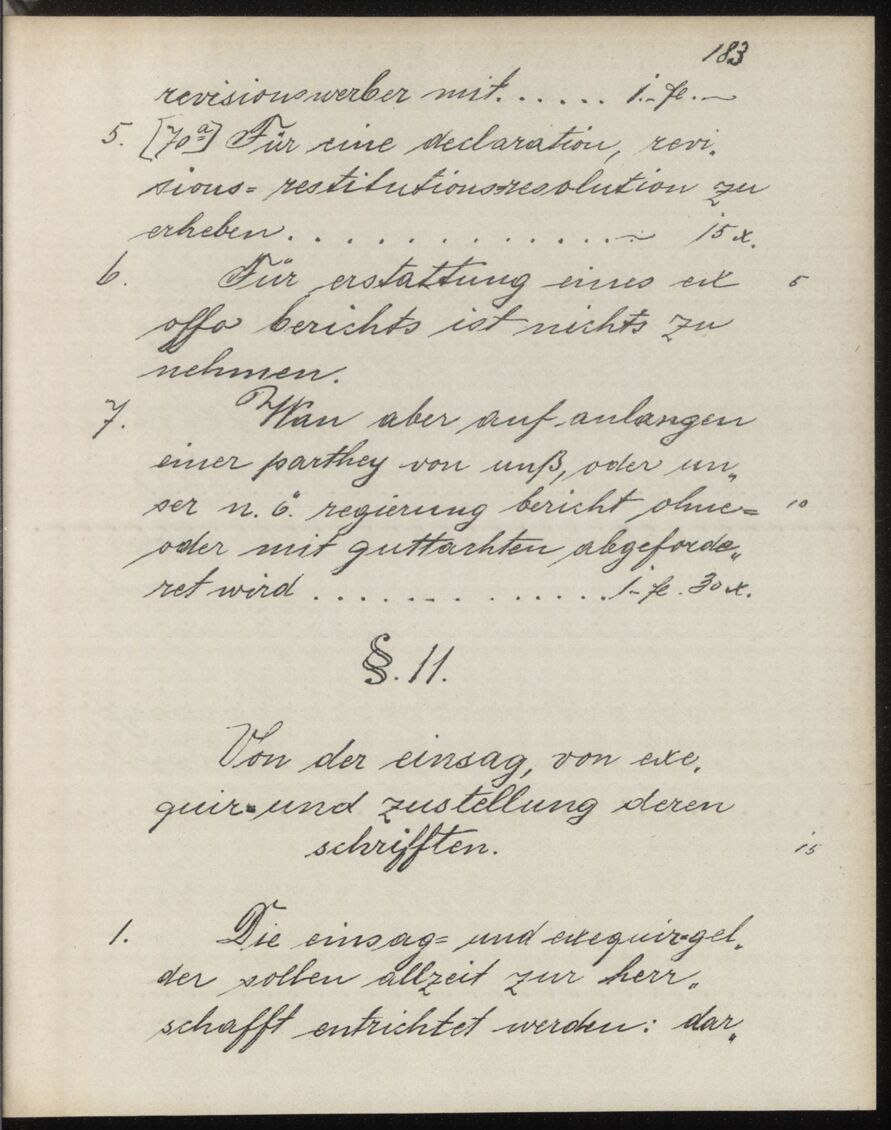 183
revisionswerber mit. . . . . . 1.- fl. -
5. [70a] Für eine declaration, revi-
sions= restitutionsresolution zu
erheben. . . . . . . . . . . . . . - 15 x.
6. Für erstattung eines ex 5
offo berichts ist nichts zu
nehmen.
7. Wan aber auf anlangen
einer parthey von unß, oder un„
ser n. ö. regierung bericht ohne= 10
oder mit guttachten abgeforde„
ret wird . . . . . . . . . . . . . 1.- fl. 30 x.
§. 11.
Von der einsag, von exe-
quir- und zustellung deren
schrifften. 15
1. Die einsag= und exequir=gel„
der sollen allzeit zur herr„
schafft entrichtet werden: dar„